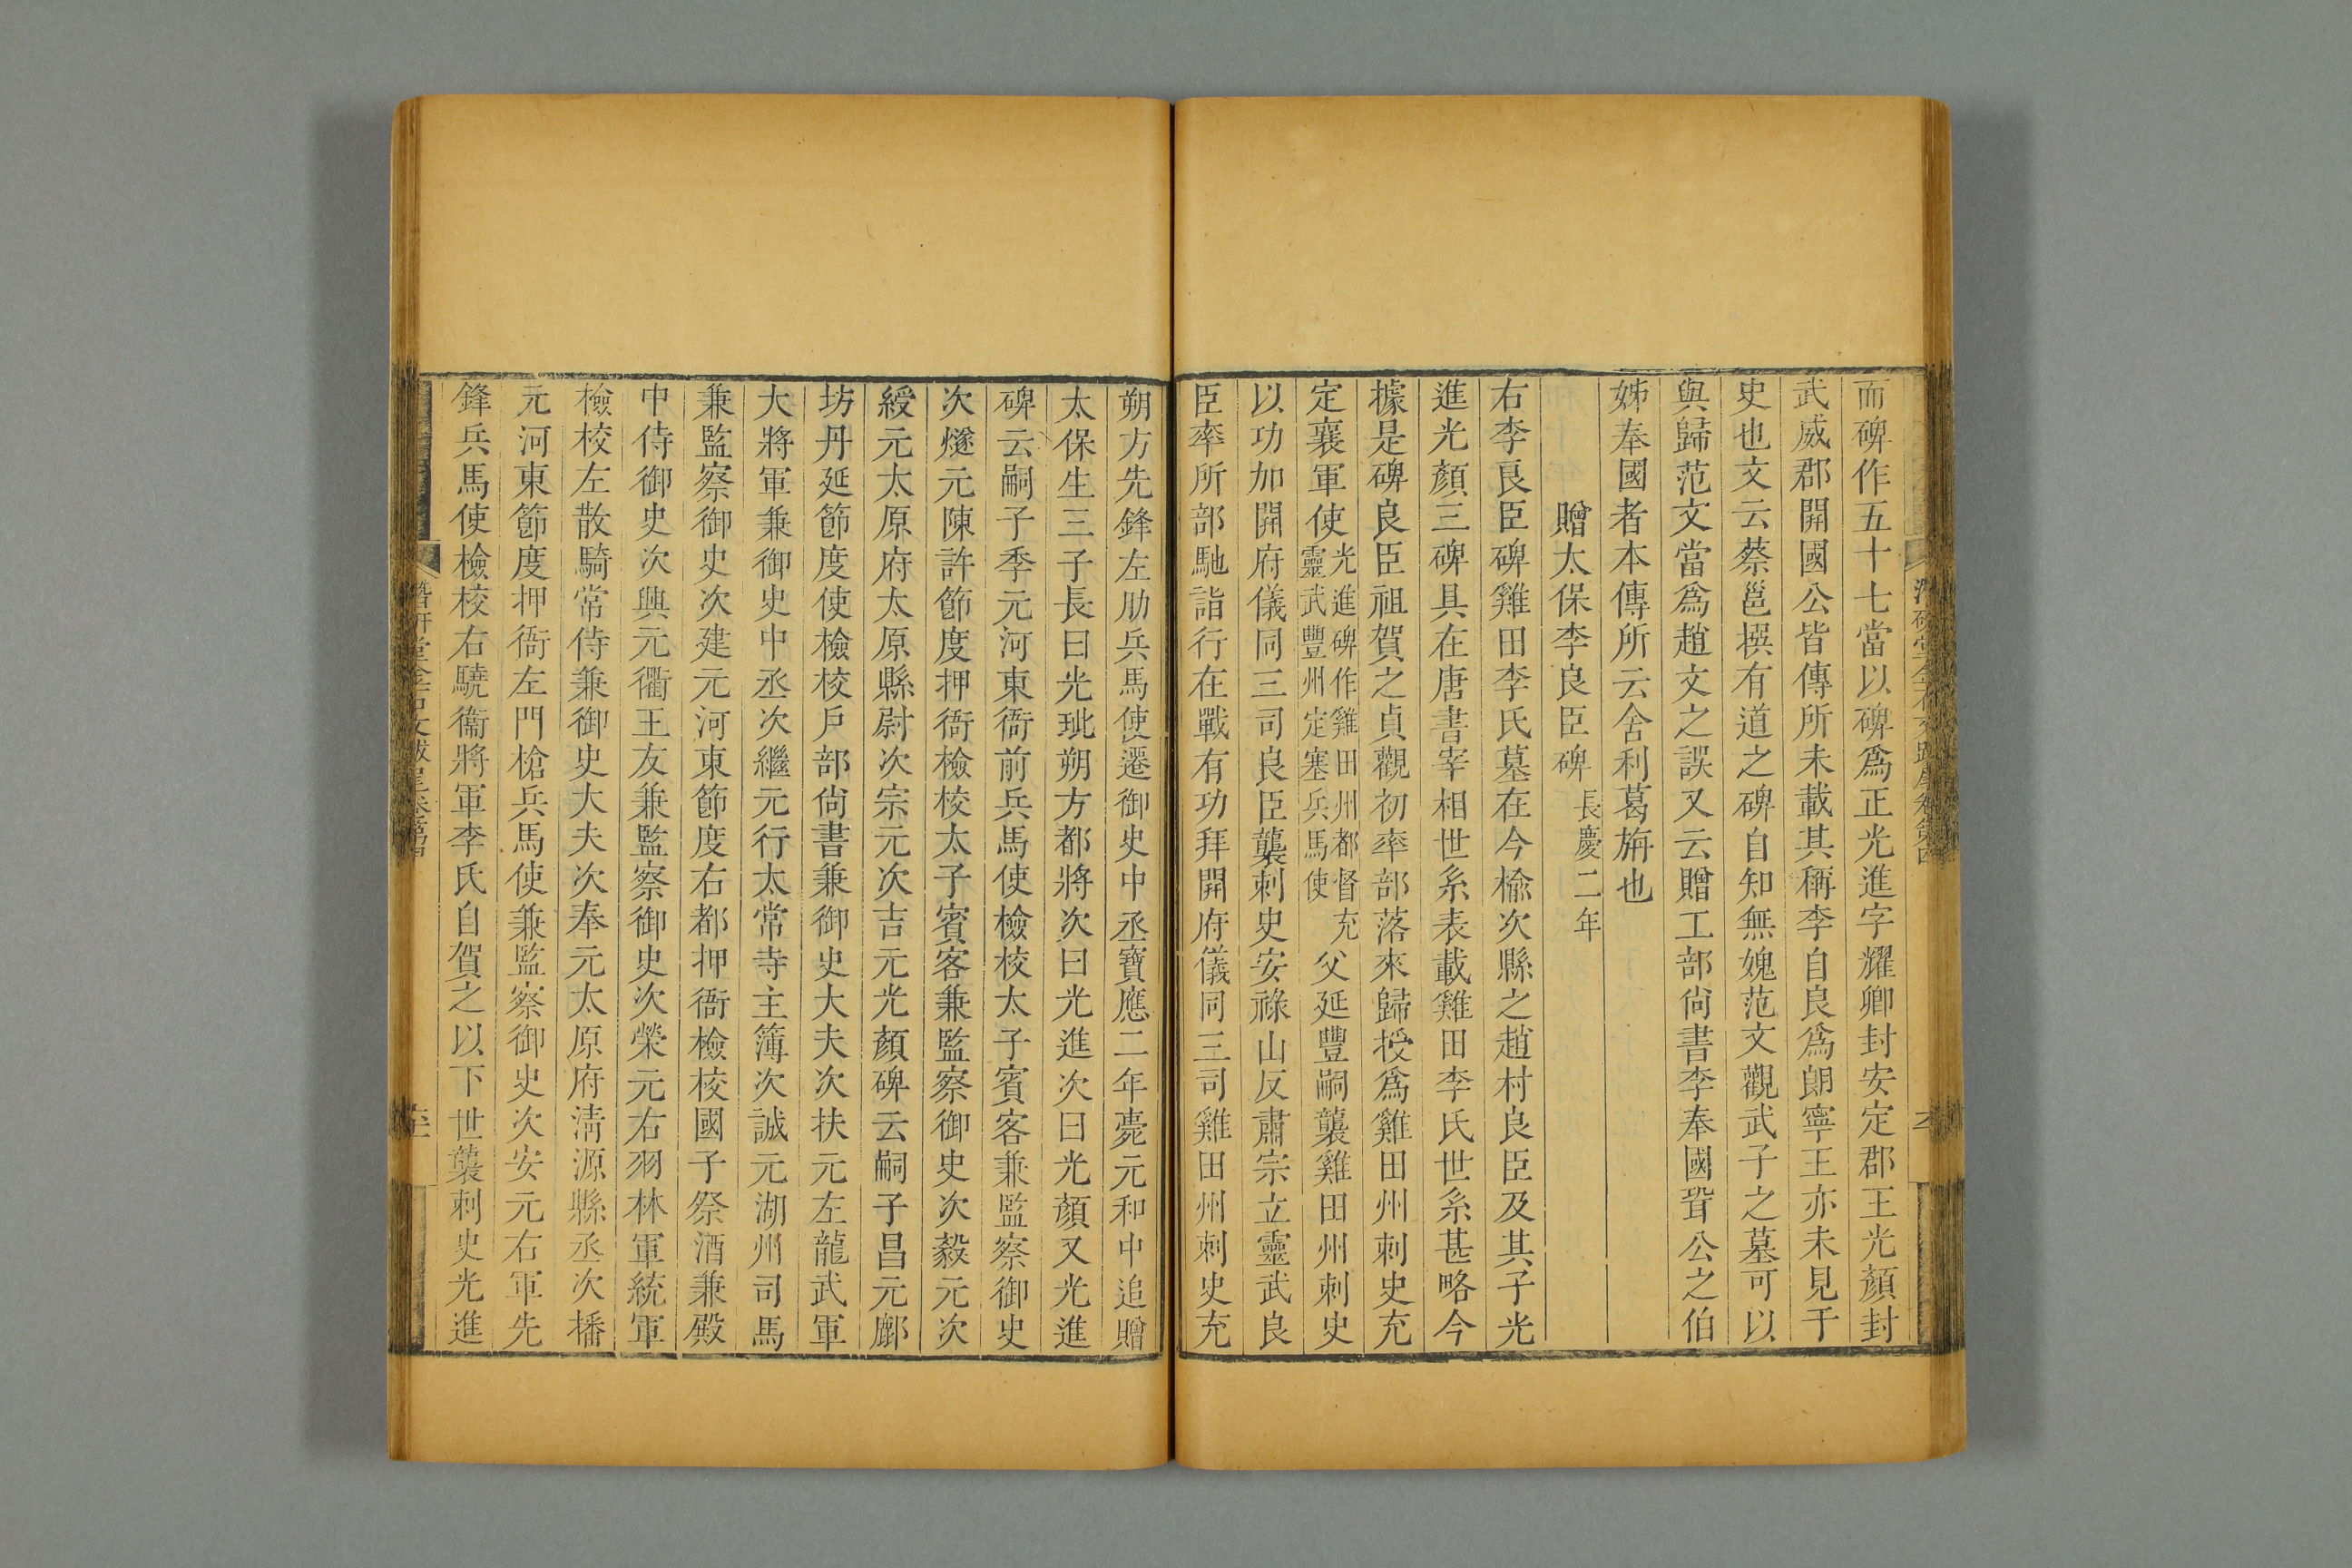 而碑作五十七當以碑爲正光進字耀卿封安定郡王光顏封
武威郡開國公皆傳所未載其稱李自良爲朗寧王亦未見于
史也文云蔡邕撰有道之碑自知無媿范文觀武子之墓可以
與歸范文當爲趙文之誤又云贈工部尚書李奉國者公之伯
姊奉國者本傳所云舍利葛旃也
贈太保李良臣碑 長慶二年
右李良臣碑雞田李氏墓在今榆次縣之趙村良臣及其子光
進光顏三碑具在唐書宰相世系表載雞田李氏世系甚略今
據是碑良臣祖賀之貞觀初率部落來歸授爲雞田州刺史充
定襄軍使光進碑作雞田州都督充靈武豐州定塞兵馬使父延豐嗣襲雞田州刺史
以功加開府儀同三司良臣襲刺史安祿山反肅宗立靈武良
臣率所部馳詣行在戰有功拜開府儀同三司雞田州刺史充
朔方先鋒左肋兵馬使遷御史中丞寶應二年薨元和中追贈
太保生三子長曰光玼朔方都將次曰光進次曰光顏又光進
碑云嗣子季元河東衙前兵馬使檢校太子賓客兼監察御史
次燧元陳許節度押衙檢校太子賓客兼監察御史次毅元次
綬元太原府太原縣尉次宗元次吉元光顏碑云嗣子昌元鄜
坊丹延節度使檢校戶部尙書兼御史大夫次扶元左龍武軍
大將軍兼御史中丞次繼元行太常寺主簿次誠元湖州司馬
兼監察御史次建元河東節度右都押衙檢校國子祭酒兼殿
中侍御史次興元衢王友兼監察御史次榮元右羽林軍統軍
檢校左散騎常侍兼御史大夫次奉元太原府淸源縣丞次播
元河東節度押衙左門槍兵馬使兼監察御史次安元右軍先
鋒兵馬使檢校右驍衞將軍李氏自賀之以下世襲刺史光進